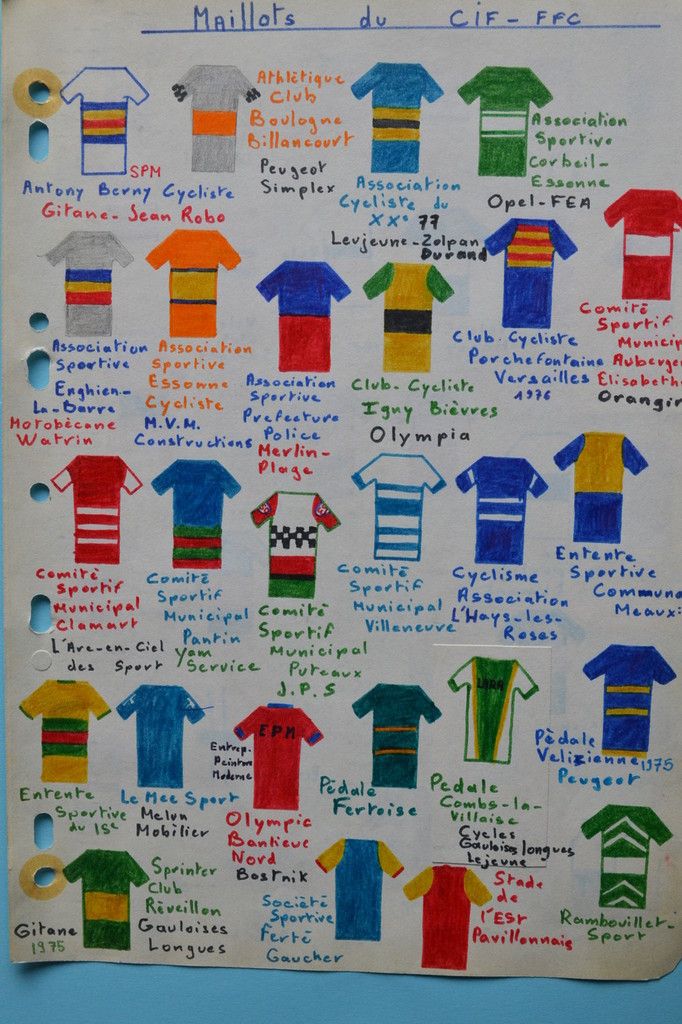 Maillots du CIF-FFC
SPM
Antony Berny Cycliste
Gitane-Jean Robo
Athlètique
Club
Boulogne
Billancourt
Peugeot
Simplex
Association
Cycliste du
XXe 77
Levjeune-Zolpan
Durand
Association
Sportive
Corbeil-
Essonne
Opel-FEA
Association
Sportive
Enghien-
La-Barre
Motobècane
Watrin
Association
Sportive
Essonne
Cycliste
M.V.M.
Constructions
Association
Sportive
Prefecture
Police
Merlin-
Plage
Club-Cycliste
Igny Bièvres
Olympia
Club Cycliste
Porchefontaine
Versailles
1976
Comitè
Sportif
Municip
Auberge
Elisabeth
Orangin
Comitè
Sportif
Municipal
Clamart
L'Arc-en-Ciel
des Sport
Comitè
Sportif
Municipal
Pantin
Yam
Service
Comitè
Sportif
Municipal
Puteaux
J.P.S
Comitè
Sportif
Municipal
Villeneuve
Cyclisme
Association
L'Hays-les-
Roses
Entente
Sportive
Commune
Meaux
Entente
Sportive
du 15e
Le Mee Sport
Melun
Mobilier
EPM
Entrep.
Peinture
Moderne
Olympic
Banlieue
Nord
Bostnik
Pèdale
Fertoise
LARA
Pedale
Combs-la-
Villaise
Cycles
Gauloises longues
Lejeune
Pèdale
Velizienne 1975
Peugeot
Gitane
1975
Sprinter
Club
Rèveillon
Gauloises
Longues
Société
Sportive
Fertè
Gaucher
Stade
de
l'Est
Pavillonnais
Rambouillet-
Sport